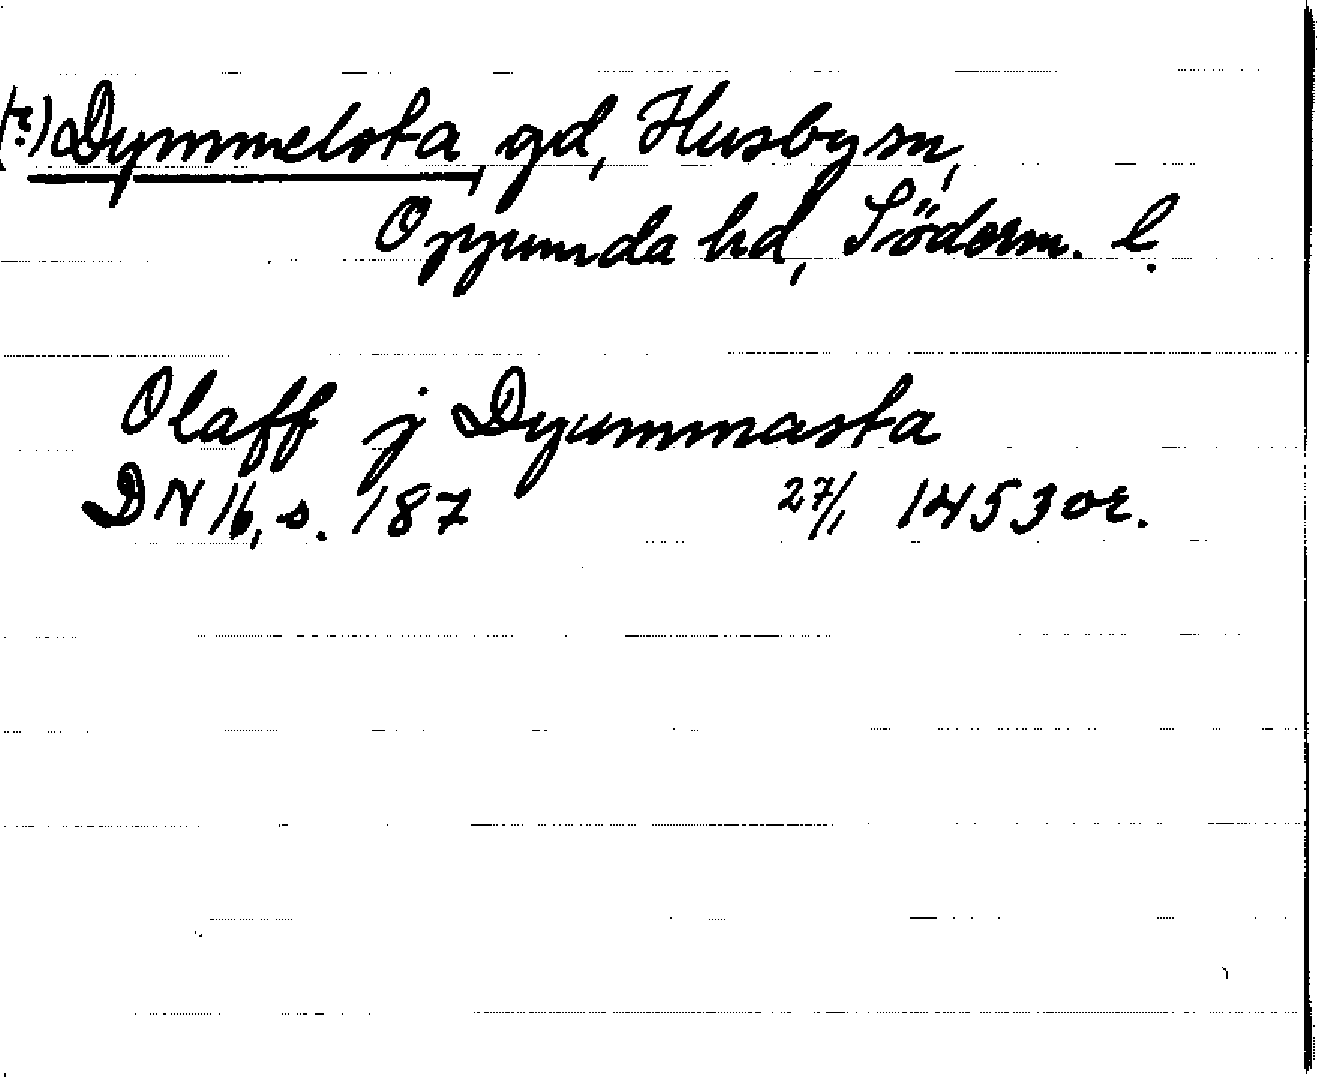 (?) Dymmelsta, gd, Husby sn,
Oppunda hd, Söderm. l.
Olaff j Dyummasta
DN 16, s. 187 27/1 1453 or.